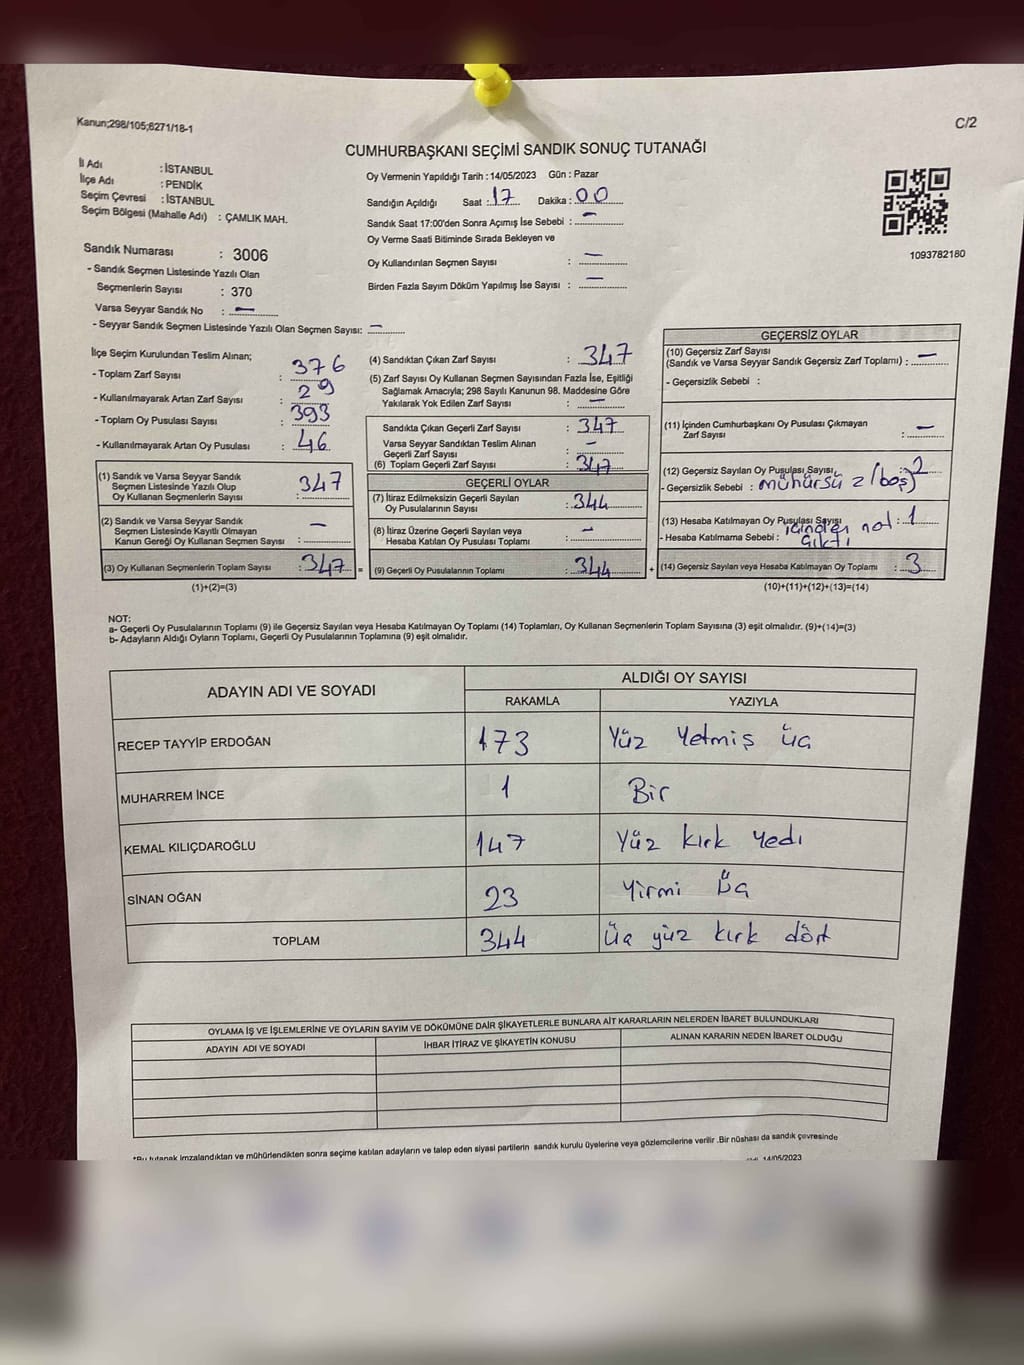 Kanun;298/105;8271/18-1
C/2
CUMHURBAŞKANI SEÇİMİ SANDIK SONUÇ TUTANAĞI
İl Adı : İSTANBUL
İlçe Adı : PENDİK
Seçim Çevresi : İSTANBUL
Seçim Bölgesi (Mahalle Adı) : ÇAMLIK MAH.
Sandık Numarası : 3006
- Sandık Seçmen Listesinde Yazılı Olan
Seçmenlerin Sayısı : 370
Varsa Seyyar Sandık No : —
- Seyyar Sandık Seçmen Listesinde Yazılı Olan Seçmen Sayısı: —
Oy Vermenin Yapıldığı Tarih : 14/05/2023 Gün : Pazar
Sandığın Açıldığı Saat : 17 Dakika : 00
Sandık Saat 17:00'den Sonra Açımış İse Sebebi : —
Oy Verme Saati Bitiminde Sırada Bekleyen ve
Oy Kullandırılan Seçmen Sayısı : —
Birden Fazla Sayım Döküm Yapılmış İse Sayısı : —
1093782180
İlçe Seçim Kurulundan Teslim Alınan;
- Toplam Zarf Sayısı : 376
- Kullanılmayarak Artan Zarf Sayısı : 29
- Toplam Oy Pusulası Sayısı : 393
- Kullanılmayarak Artan Oy Pusulası : 46
(1) Sandık ve Varsa Seyyar Sandık
Seçmen Listesinde Yazılı Olup
Oy Kullanan Seçmenlerin Sayısı : 347
(2) Sandık ve Varsa Seyyar Sandık
Seçmen Listesinde Kayıtlı Olmayan
Kanun Gereği Oy Kullanan Seçmen Sayısı : —
(3) Oy Kullanan Seçmenlerin Toplam Sayısı : 347 =
(1)+(2)=(3)
(4) Sandıktan Çıkan Zarf Sayısı : 347
(5) Zarf Sayısı Oy Kullanan Seçmen Sayısından Fazla İse, Eşitliği
Sağlamak Amacıyla; 298 Sayılı Kanunun 98. Maddesine Göre
Yakılarak Yok Edilen Zarf Sayısı : —
Sandıkta Çıkan Geçerli Zarf Sayısı : 347
Varsa Seyyar Sandıktan Teslim Alınan
Geçerli Zarf Sayısı : —
(6) Toplam Geçerli Zarf Sayısı : 347
GEÇERLİ OYLAR
(7) İtiraz Edilmeksizin Geçerli Sayılan
Oy Pusulalarının Sayısı : 344
(8) İtiraz Üzerine Geçerli Sayılan veya
Hesaba Katılan Oy Pusulası Toplamı : —
(9) Geçerli Oy Pusulalarının Toplamı : 344 +
GEÇERSİZ OYLAR
(10) Geçersiz Zarf Sayısı
(Sandık ve Varsa Seyyar Sandık Geçersiz Zarf Toplamı) : —
- Geçersizlik Sebebi :
(11) İçinden Cumhurbaşkanı Oy Pusulası Çıkmayan
Zarf Sayısı : —
(12) Geçersiz Sayılan Oy Pusulası Sayısı : 2
- Geçersizlik Sebebi : mühürsüz/boş
(13) Hesaba Katılmayan Oy Pusulası Sayısı : 1
- Hesaba Katılmama Sebebi : içinden not
çıktı
(14) Geçersiz Sayılan veya Hesaba Katılmayan Oy Toplamı : 3
(10)+(11)+(12)+(13)=(14)
NOT:
a- Geçerli Oy Pusulalarının Toplamı (9) ile Geçersiz Sayılan veya Hesaba Katılmayan Oy Toplamı (14) Toplamları, Oy Kullanan Seçmenlerin Toplam Sayısına (3) eşit olmalıdır. (9)+(14)=(3)
b- Adayların Aldığı Oyların Toplamı, Geçerli Oy Pusulalarının Toplamına (9) eşit olmalıdır.
ADAYIN ADI VE SOYADI ALDIĞI OY SAYISI
RAKAMLA YAZIYLA
RECEP TAYYİP ERDOĞAN 173 Yüz Yetmiş üç
MUHARREM İNCE 1 Bir
KEMAL KILIÇDAROĞLU 147 Yüz kırk yedi
SİNAN OĞAN 23 Yirmi Üç
TOPLAM 344 Üç yüz kırk dört
OYLAMA İŞ VE İŞLEMLERİNE VE OYLARIN SAYIM VE DÖKÜMÜNE DAİR ŞİKAYETLERLE BUNLARA AİT KARARLARIN NELERDEN İBARET BULUNDUKLARI
ADAYIN ADI VE SOYADI İHBAR İTİRAZ VE ŞİKAYETİN KONUSU ALINAN KARARIN NEDEN İBARET OLDUĞU
*Bu tutanak imzalandıktan ve mühürlendikten sonra seçime katılan adayların ve talep eden siyasi partilerin sandık kurulu üyelerine veya gözlemcilerine verilir .Bir nüshası da sandık çevresinde
14/05/2023